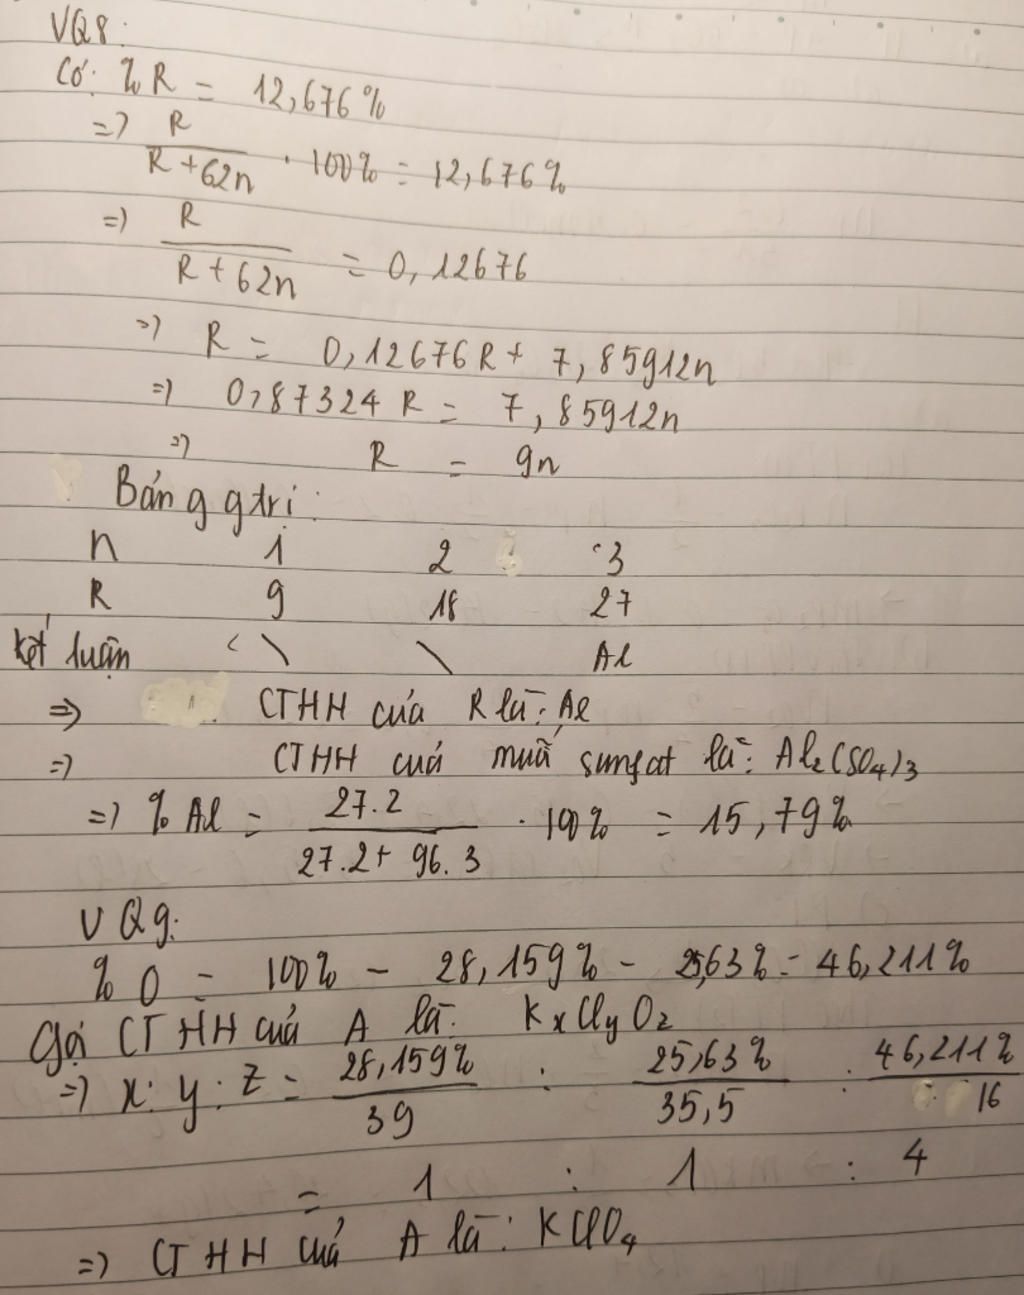 VQ8:
Có: % R = 12,676%
=> R / (R + 62n) . 100% = 12,676%
=> R / (R + 62n) = 0,12676
=> R = 0,12676R + 7,85912n
=> 0,87324 R = 7,85912n
=> R = 9n
Bảng gtrị:
n 1 2 3
R 9 18 27
Kết luận \ \ Al
=> CTHH của R là: Al
=> CTHH của muối sunfat là: Al₂(SO₄)₃
=> % Al = (27.2) / (27.2 + 96.3) . 100% = 15,79%
VQ9:
% O = 100% - 28,159% - 25,63% = 46,211%
Gọi CTHH của A là: KxClyOz
=> x : y : z = 28,159% / 39 : 25,63% / 35,5 : 46,211% / 16
= 1 : 1 : 4
=> CTHH của A là: KClO₄